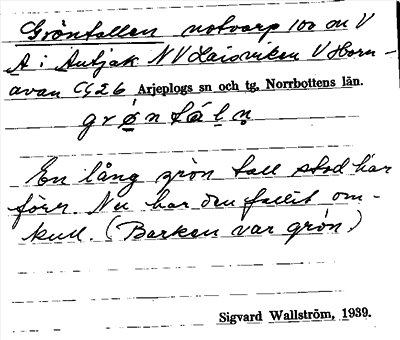 Gröntallen notvarp 100 m V
A i Autjak NV Laisviken V Horn-
avan C926 Arjeplogs sn och tg, Norrbottens län.
grø̄n táln̥
En lång grön tall stod här
förr. Nu har den fallit om-
kull. (Barken var grön)
Sigvard Wallström, 1939.